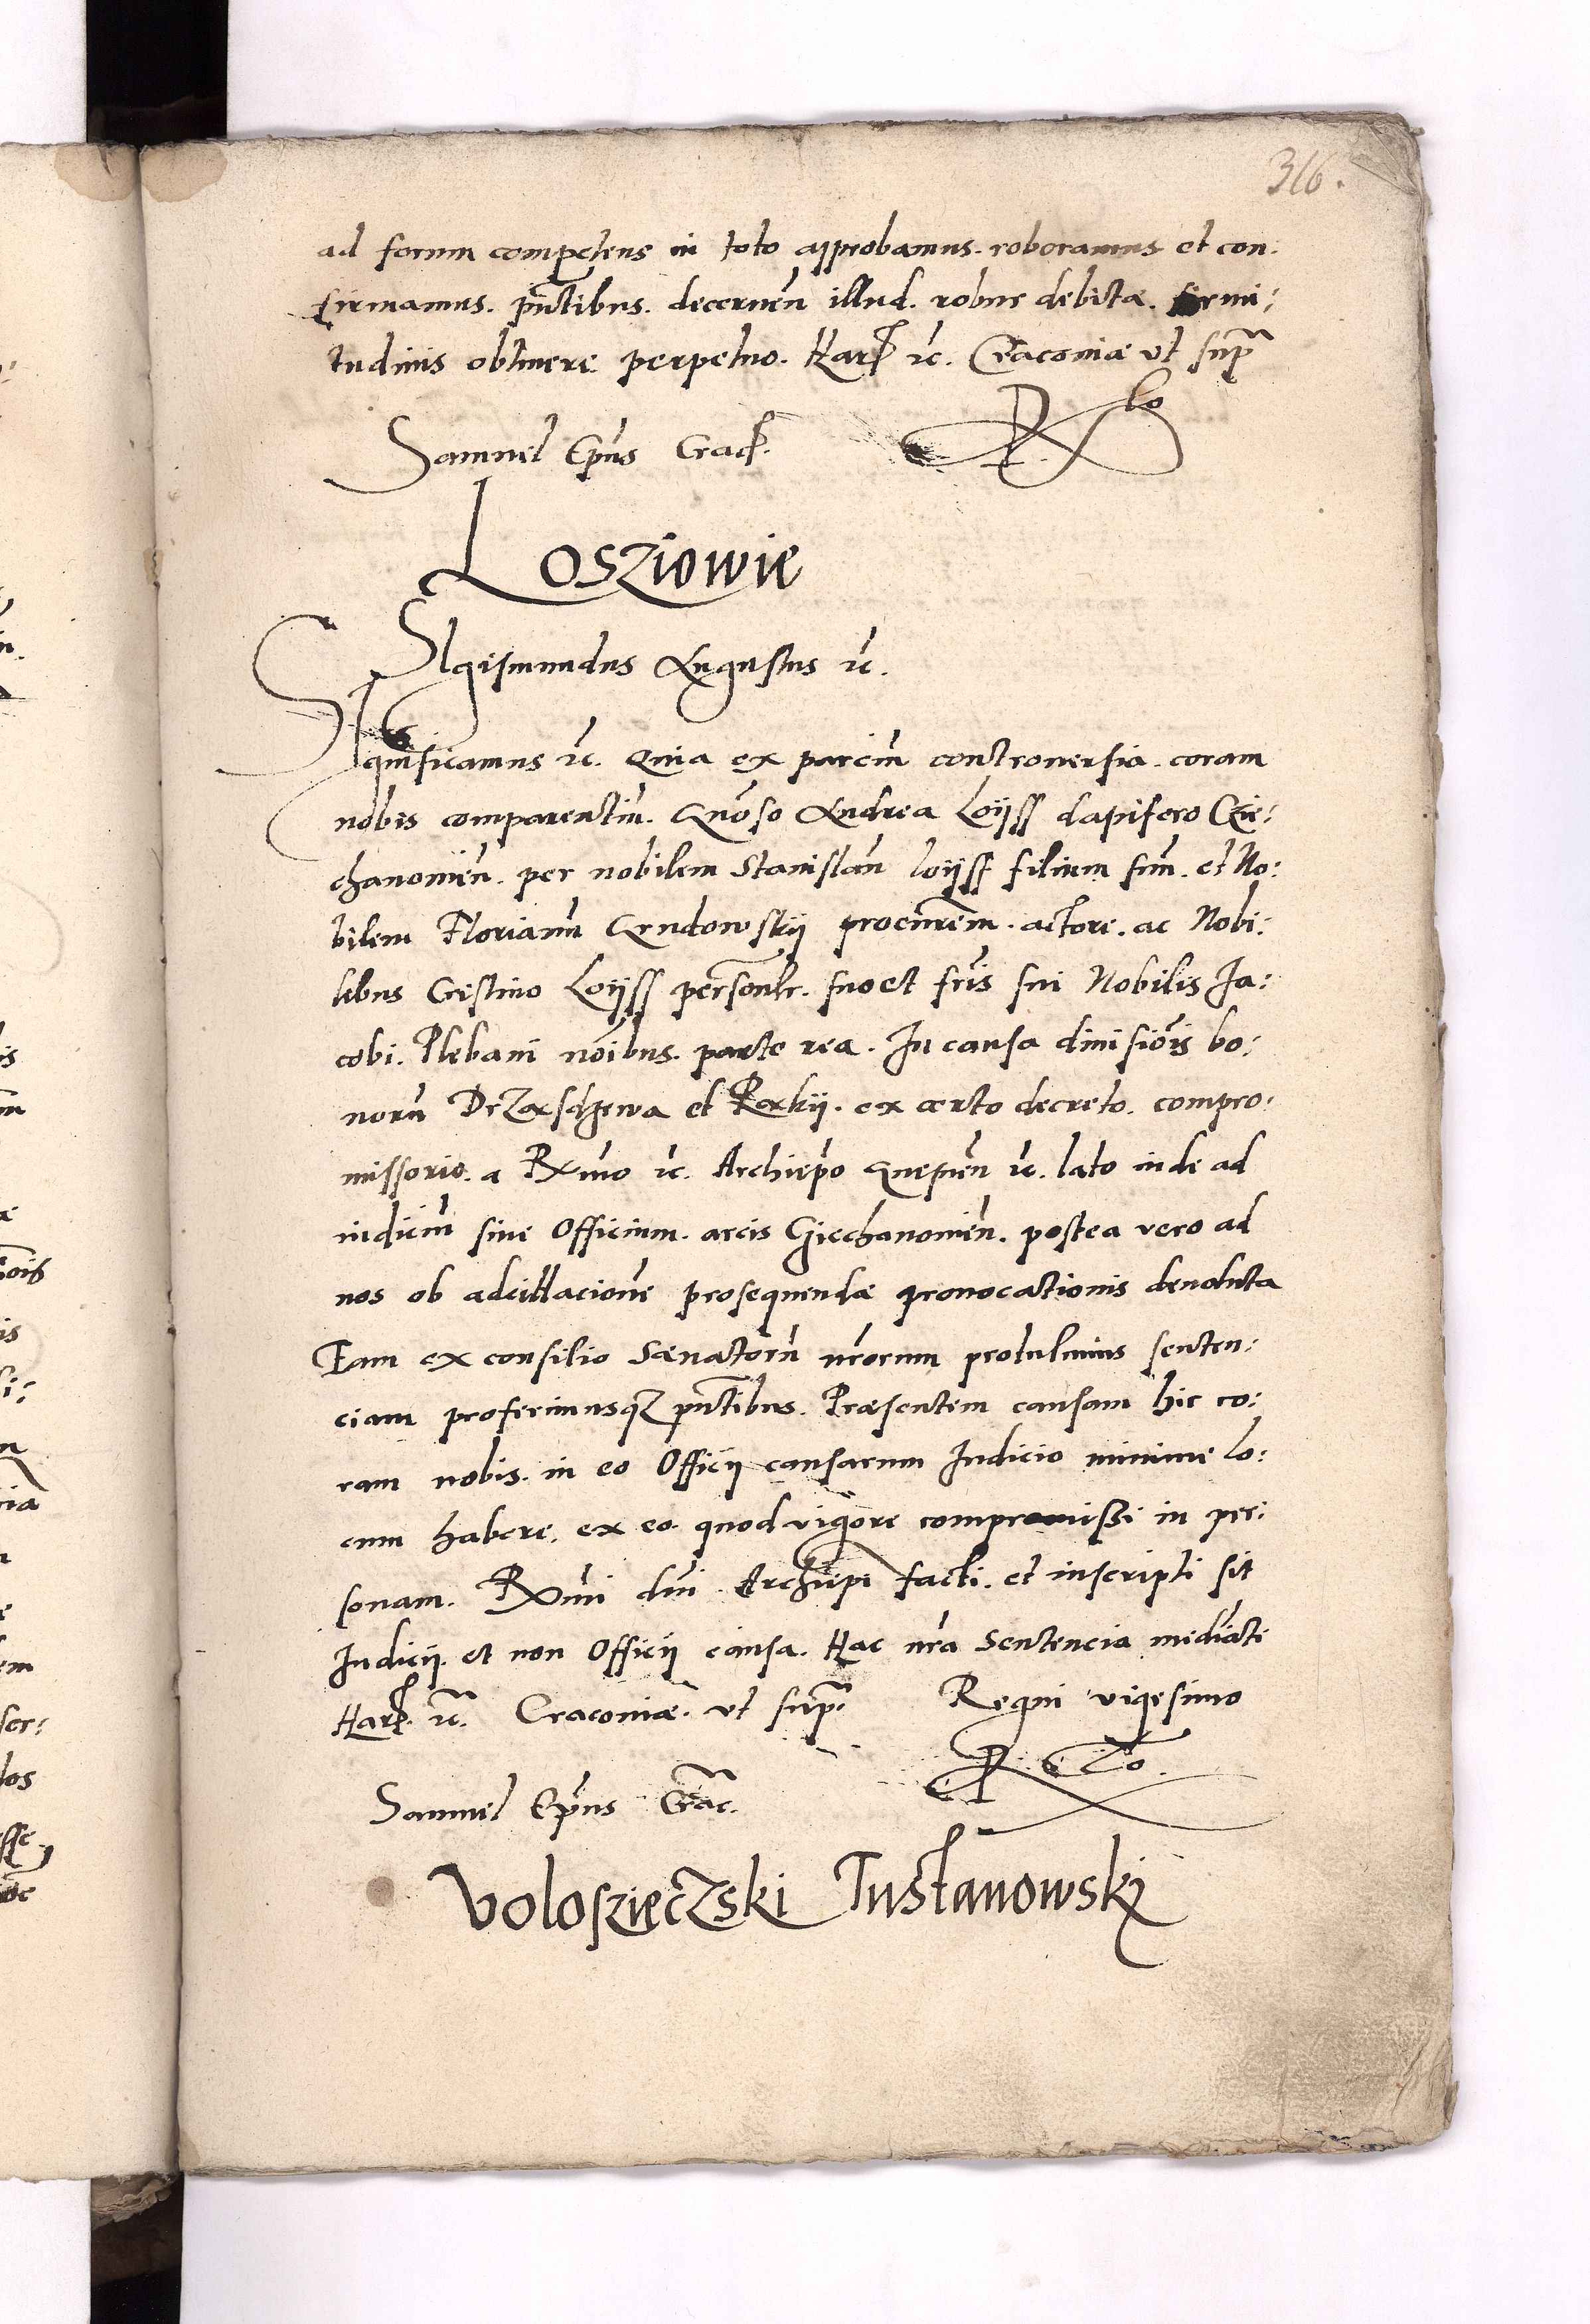 316.
ad forum competens in toto approbamus. roboramus et con:
firmamus. pñtibus. decernen̄ illud. robur debitæ. firmi:
tudinis obtinere perpetuo. Harꝭ ꝛc. Cracoviæ ut supᵃ
Samuel Ep̃us Cracꝭ.
Losziowie
SIgismundus Augustus ꝛc.
SIgnificamus ꝛc. Quia ex parciū controversia. coram
nobis comparentiū. Gn̄oso Andrea Loyss dapifero Czie:
chanovien̄. per nobilem Stanislaū Loyss filium suū. et No:
bilem Florianū Grudowskÿ procurēm. actore. ac Nobi:
libus Cristino Loyss personlr. suo et fr̃is sui Nobilis Ja:
cobi. Plebani nōibus. parte rea. In causa divisiōis bo:
norū et Rxkÿ. ex certo decreto. compro:
missorio. a Rx̃mo ꝛc. Archiep̃o Gnesnen̄ ꝛc. lato inde ad
iudiciū sive Officium. arcis Cziechanovien̄. postea vero ad
nos ob adcitacionē prosequendæ provocationis devoluta
Eam ex consilio Senatorū nr̃orum protulimus senten:
ciam proferimusqꝫ pñtibus. Præsentem causam hic co:
ram nobis. in eo Officÿ causarum Judicio minime lo:
cum habere. ex eo. quod vigore compromissi in per:
sonam. Rx̃mi dn̄i Archiepi facti. et inscripti sit
Judicÿ. et non Officÿ causa. Hac nr̃a Sentencia mediāte
Harꝭ. ꝛc. Cracoviæ. ut supᵃ. Regni vigesimo
Samuel Ep̃us Crac.
Voloszieczski Tustanowskÿ